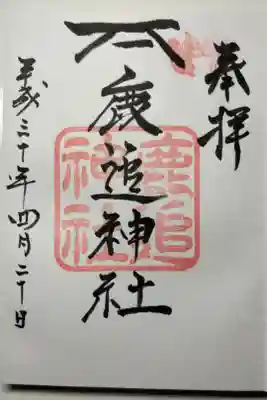 奉拝
鹿追神社
鹿追神社
平成三十年四月二十日